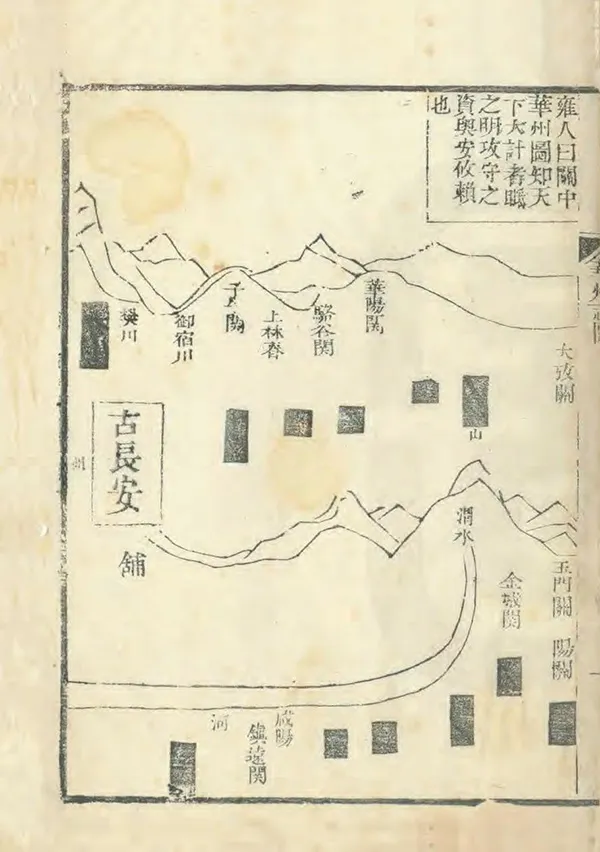 雍人曰關中
華州圖知天
下大計者
之明攻守之
資與安攸賴
也
華陽関
駱谷関
上林春
子關
御宿川
樊川
山
古長安
州
舖
水
玉門關
陽關
金城関
咸陽
鎮遠関
河